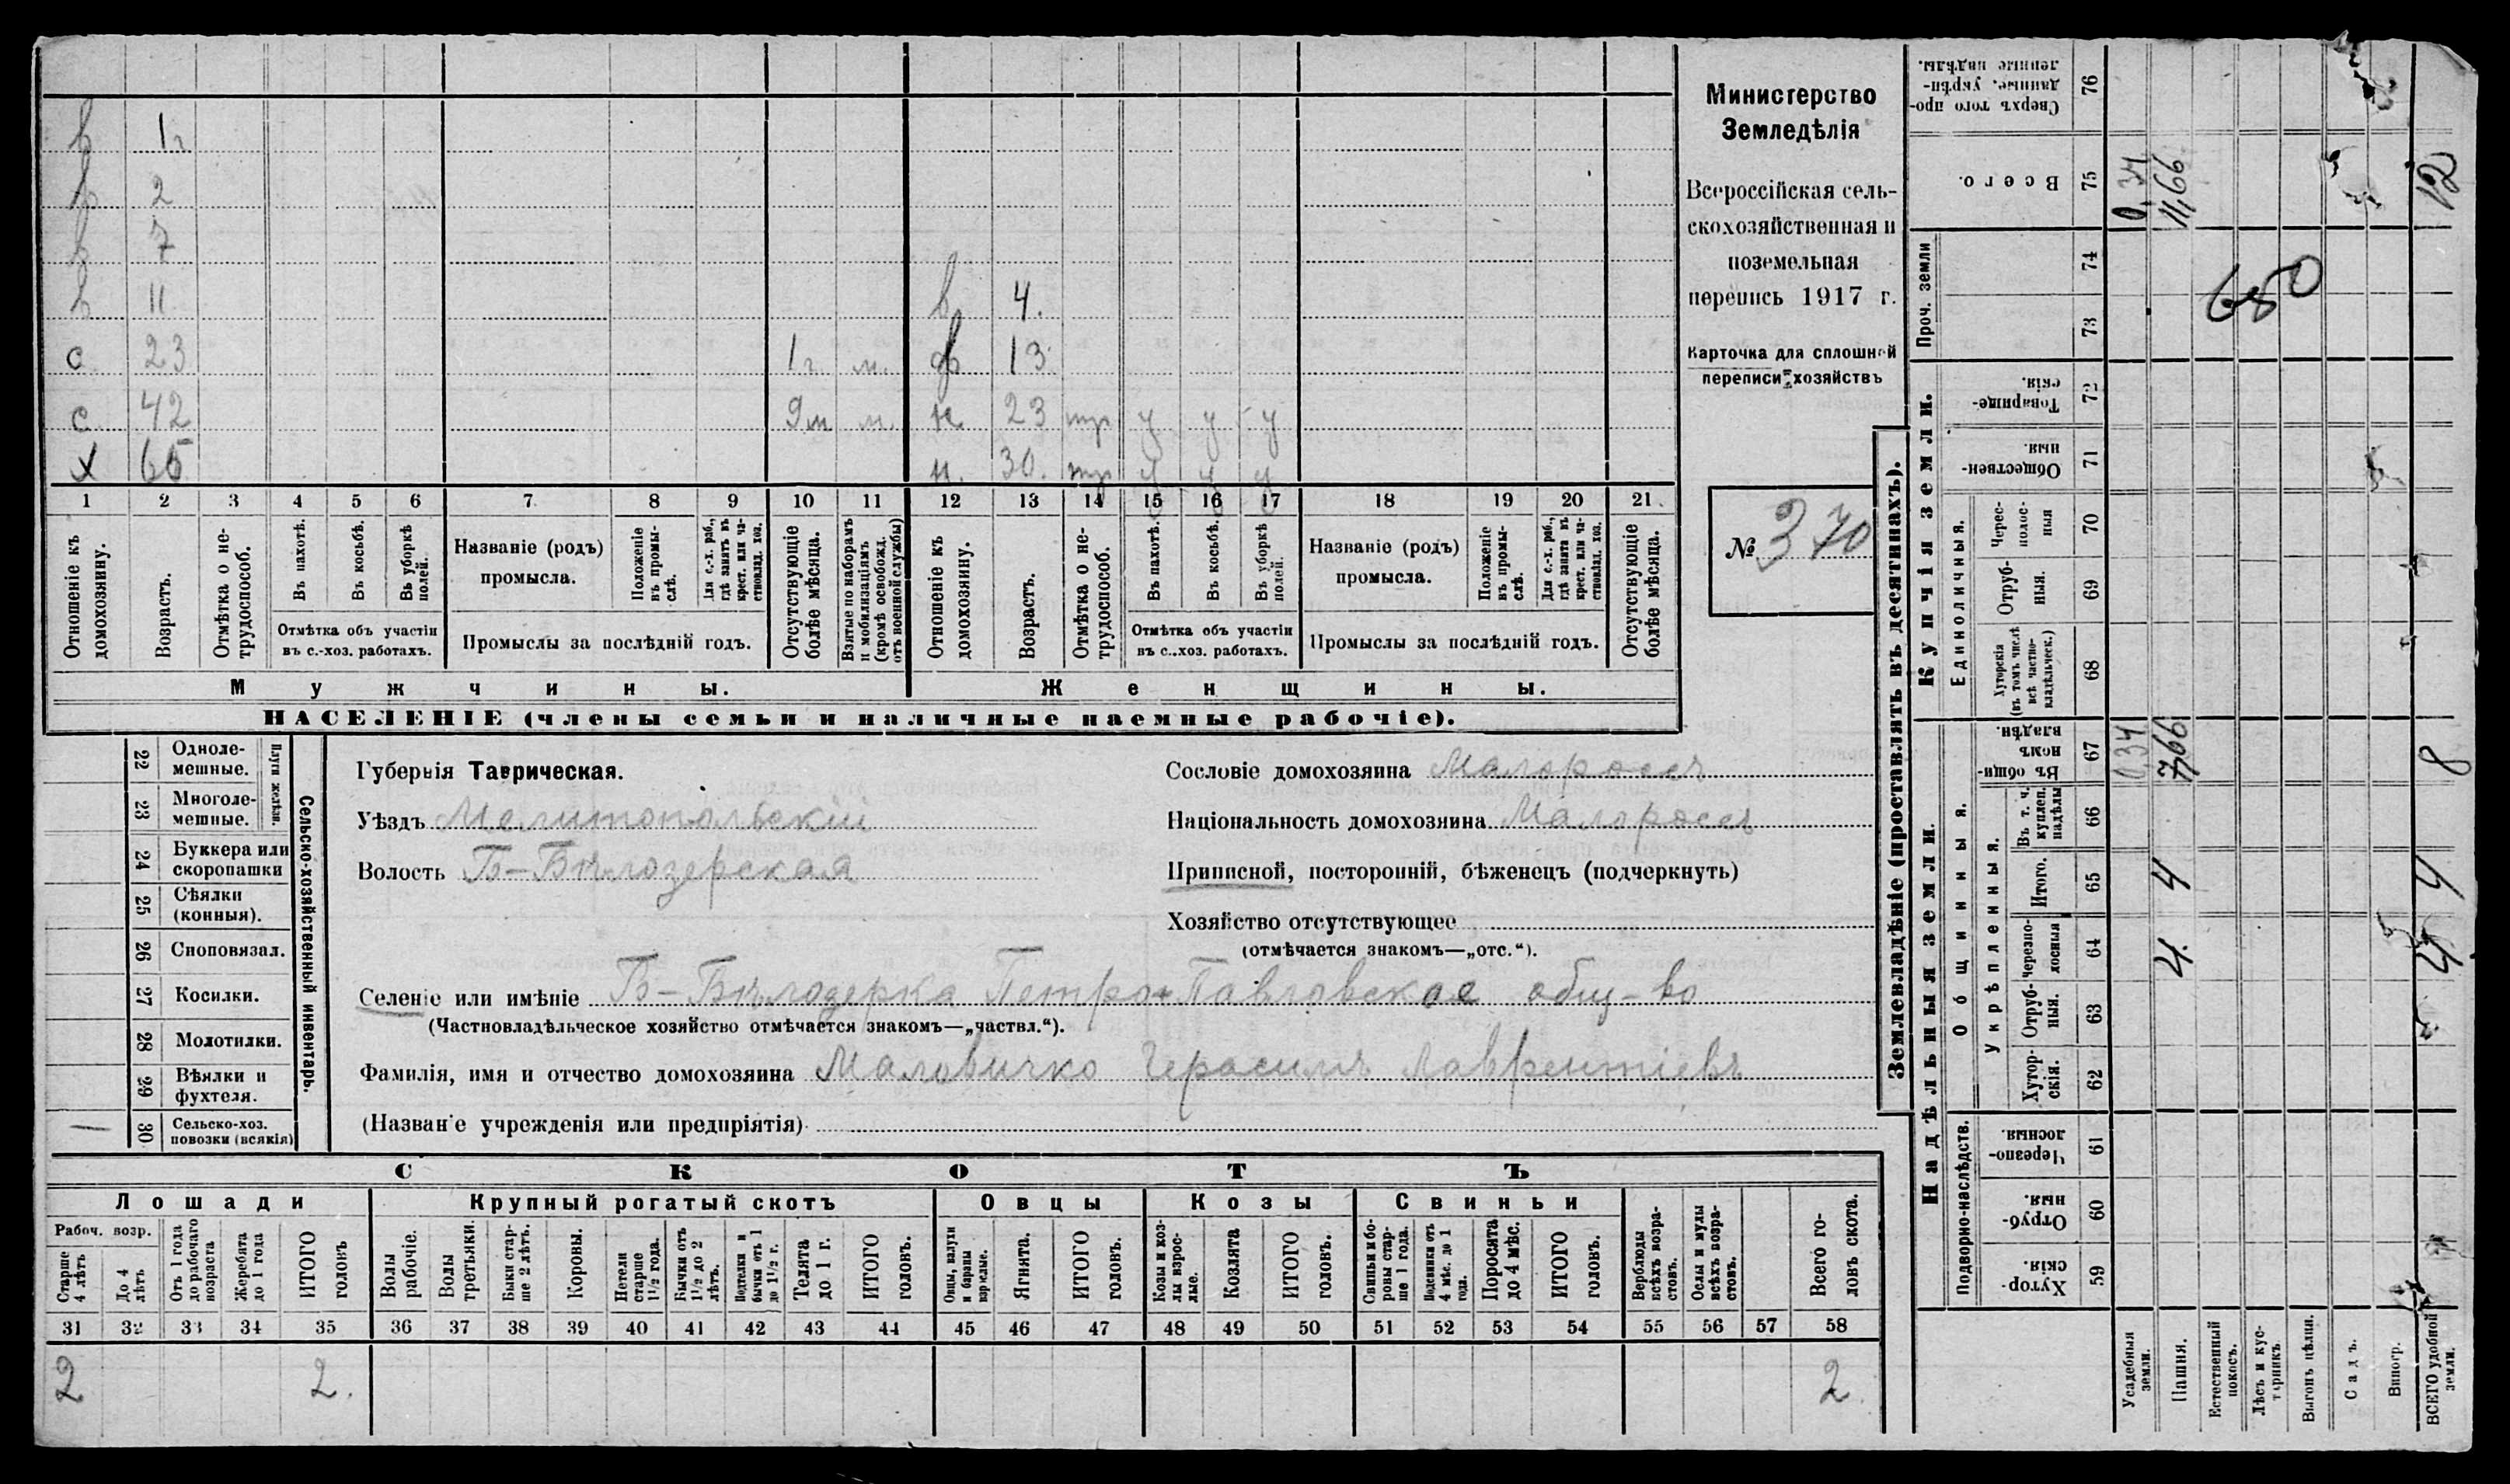 Министерство
Земледѣлія
Всероссійская сель-
скохозяйственная и
поземельная
перепись 1917 г.
Карточка для сплошной
переписи хозяйствъ
№ 370
в 1 г
в 2
в 7
в 11. в 4.
с 23 1 г. м. ф 13
с. 42 9 м м. н. 23 тр у у у
х 65 н. 30. тр у у у
1 2 3 4 5 6 7 8 9 10 11 12 13 14 15 16 17 18 19 20 21
Отношеніе къ домохозяину.
Возрастъ.
Отмѣтка о не-трудоспособ.
Въ пахотѣ.
Въ косьбѣ.
Въ уборкѣ полей.
Отмѣтка объ участіи
въ с.-хоз. работахъ.
Названіе (родъ)
промысла.
Положеніе въ промы-слѣ.
Для с.-х. раб., гдѣ занятъ въ крест. или ча-стновлад. хоз.
Промыслы за послѣдній годъ.
Отсутствующіе болѣе мѣсяца.
Взятые по наборамъ и мобилизаціямъ (кромѣ освобожд. отъ военной службы)
Отношеніе къ домохозяину.
Возрастъ.
Отмѣтка о не-трудоспособ.
Въ пахотѣ.
Въ косьбѣ.
Въ уборкѣ полей.
Отмѣтка объ участіи
въ с..хоз. работахъ.
Названіе (родъ)
промысла.
Положеніе въ промы-слѣ.
Для с.-х. раб., гдѣ занята въ крест. или ча-стновлад. хоз.
Промыслы за послѣдній годъ.
Отсутствующіе болѣе мѣсяца.
Мужчины. Женщины.
НАСЕЛЕНІЕ (члены семьи и наличные наемные рабочіе).
Сельско-хозяйственный инвентарь.
Плуги желѣзн.
22 Одноле-мешные.
23 Многоле-мешные.
24 Буккера или скоропашки
25 Сѣялки (конныя).
26 Сноповязал.
27 Косилки.
28 Молотилки.
29 Вѣялки и фухтеля.
30 Сельско-хоз. повозки (всякія)
Губернія Таврическая.
Уѣздъ Мелитопольскій
Волость Б-Бѣлозерская
Сословіе домохозяина Малороссъ
Національность домохозяина Малороссъ
Приписной, посторонній, бѣженецъ (подчеркнуть)
Хозяйство отсутствующее
(отмѣчается знакомъ—„отс.“).
Селеніе или имѣніе Б-Бѣлозерка Петро-Павловское общ-во
(Частновладѣльческое хозяйство отмѣчается знакомъ—„частвл.“).
Фамилія, имя и отчество домохозяина Маловичко Герасимъ Лаврентіевъ
(Названіе учрежденія или предпріятія)
СКОТЪ
Лошади Крупный рогатый скотъ Овцы Козы Свиньи
Рабоч. возр.
Старше 4 лѣтъ
До 4 лѣтъ
Отъ 1 года до рабочаго возраста
Жеребята до 1 года
ИТОГО головъ
Волы рабочіе.
Волы третьяки.
Быки стар-ше 2 лѣтъ.
Коровы.
Нетели старше 1½ года.
Бычки отъ 1½ до 2 лѣтъ.
Подтелки и бычки отъ 1 до 1½ г.
Телята до 1 г.
ИТОГО головъ.
Овцы, валухи и бараны взрослые.
Ягнята.
ИТОГО головъ.
Козы и коз-лы взрос-лые.
Козлята
ИТОГО головъ.
Свиньи и бо-ровы стар-ше 1 года.
Подсвинки отъ 4 мѣс. до 1 года.
Поросята до 4 мѣс.
ИТОГО головъ.
Верблюды всѣхъ возра-стовъ.
Ослы и мулы всѣхъ возра-стовъ.
Всего го-ловъ скота.
31 32 33 34 35 36 37 38 39 40 41 42 43 44 45 46 47 48 49 50 51 52 53 54 55 56 57 58
2 2. 2
Землевладѣніе (проставлять въ десятинахъ).
Надѣльныя земли. Купчія земли. Проч. земли
Подворно-наслѣдств. Общинныя. Единоличныя.
Укрѣпленныя.
Хутор-скія. 59
Отруб-ныя. 60
Черезпо-лосныя. 61
Хутор-скія. 62
Отруб-ныя. 63
Черезпо-лосныя 64
Итого. 65
Въ т. ч. куплен. надѣлы 66
Въ общин-номъ владѣн. 67
Хуторскія (въ томъ числѣ всѣ частно-владѣльческ.) 68
Отруб-ныя. 69
Черес-полос-ныя 70
Обществен-ныя. 71
Товарище-скія. 72
73
74
Всего. 75
Сверхъ того про-данные, укрѣп-ленные надѣлы. 76
Усадебныя земли. 0,34 0,34
Пашня. 4. 4 7,66 11,66
Естественный покосъ.
Лѣсъ и кус-тарникъ.
Выгонъ цѣлин.
Садъ.
Виногр.
ВСЕГО удобной земли. 4 4 8 12
650